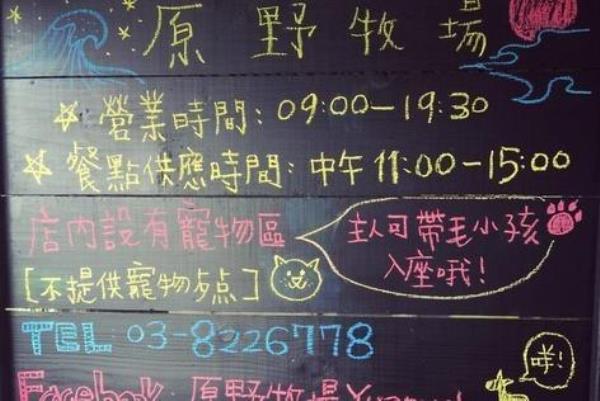 原野牧場
營業時間: 09:00-19:30
餐點供應時間: 中午 11:00-15:00
店內設有寵物區
[不提供寵物歺点]
主人可帶毛小孩
入座哦!
TEL: 03-8226778
咩!
Facebook 原野牧場